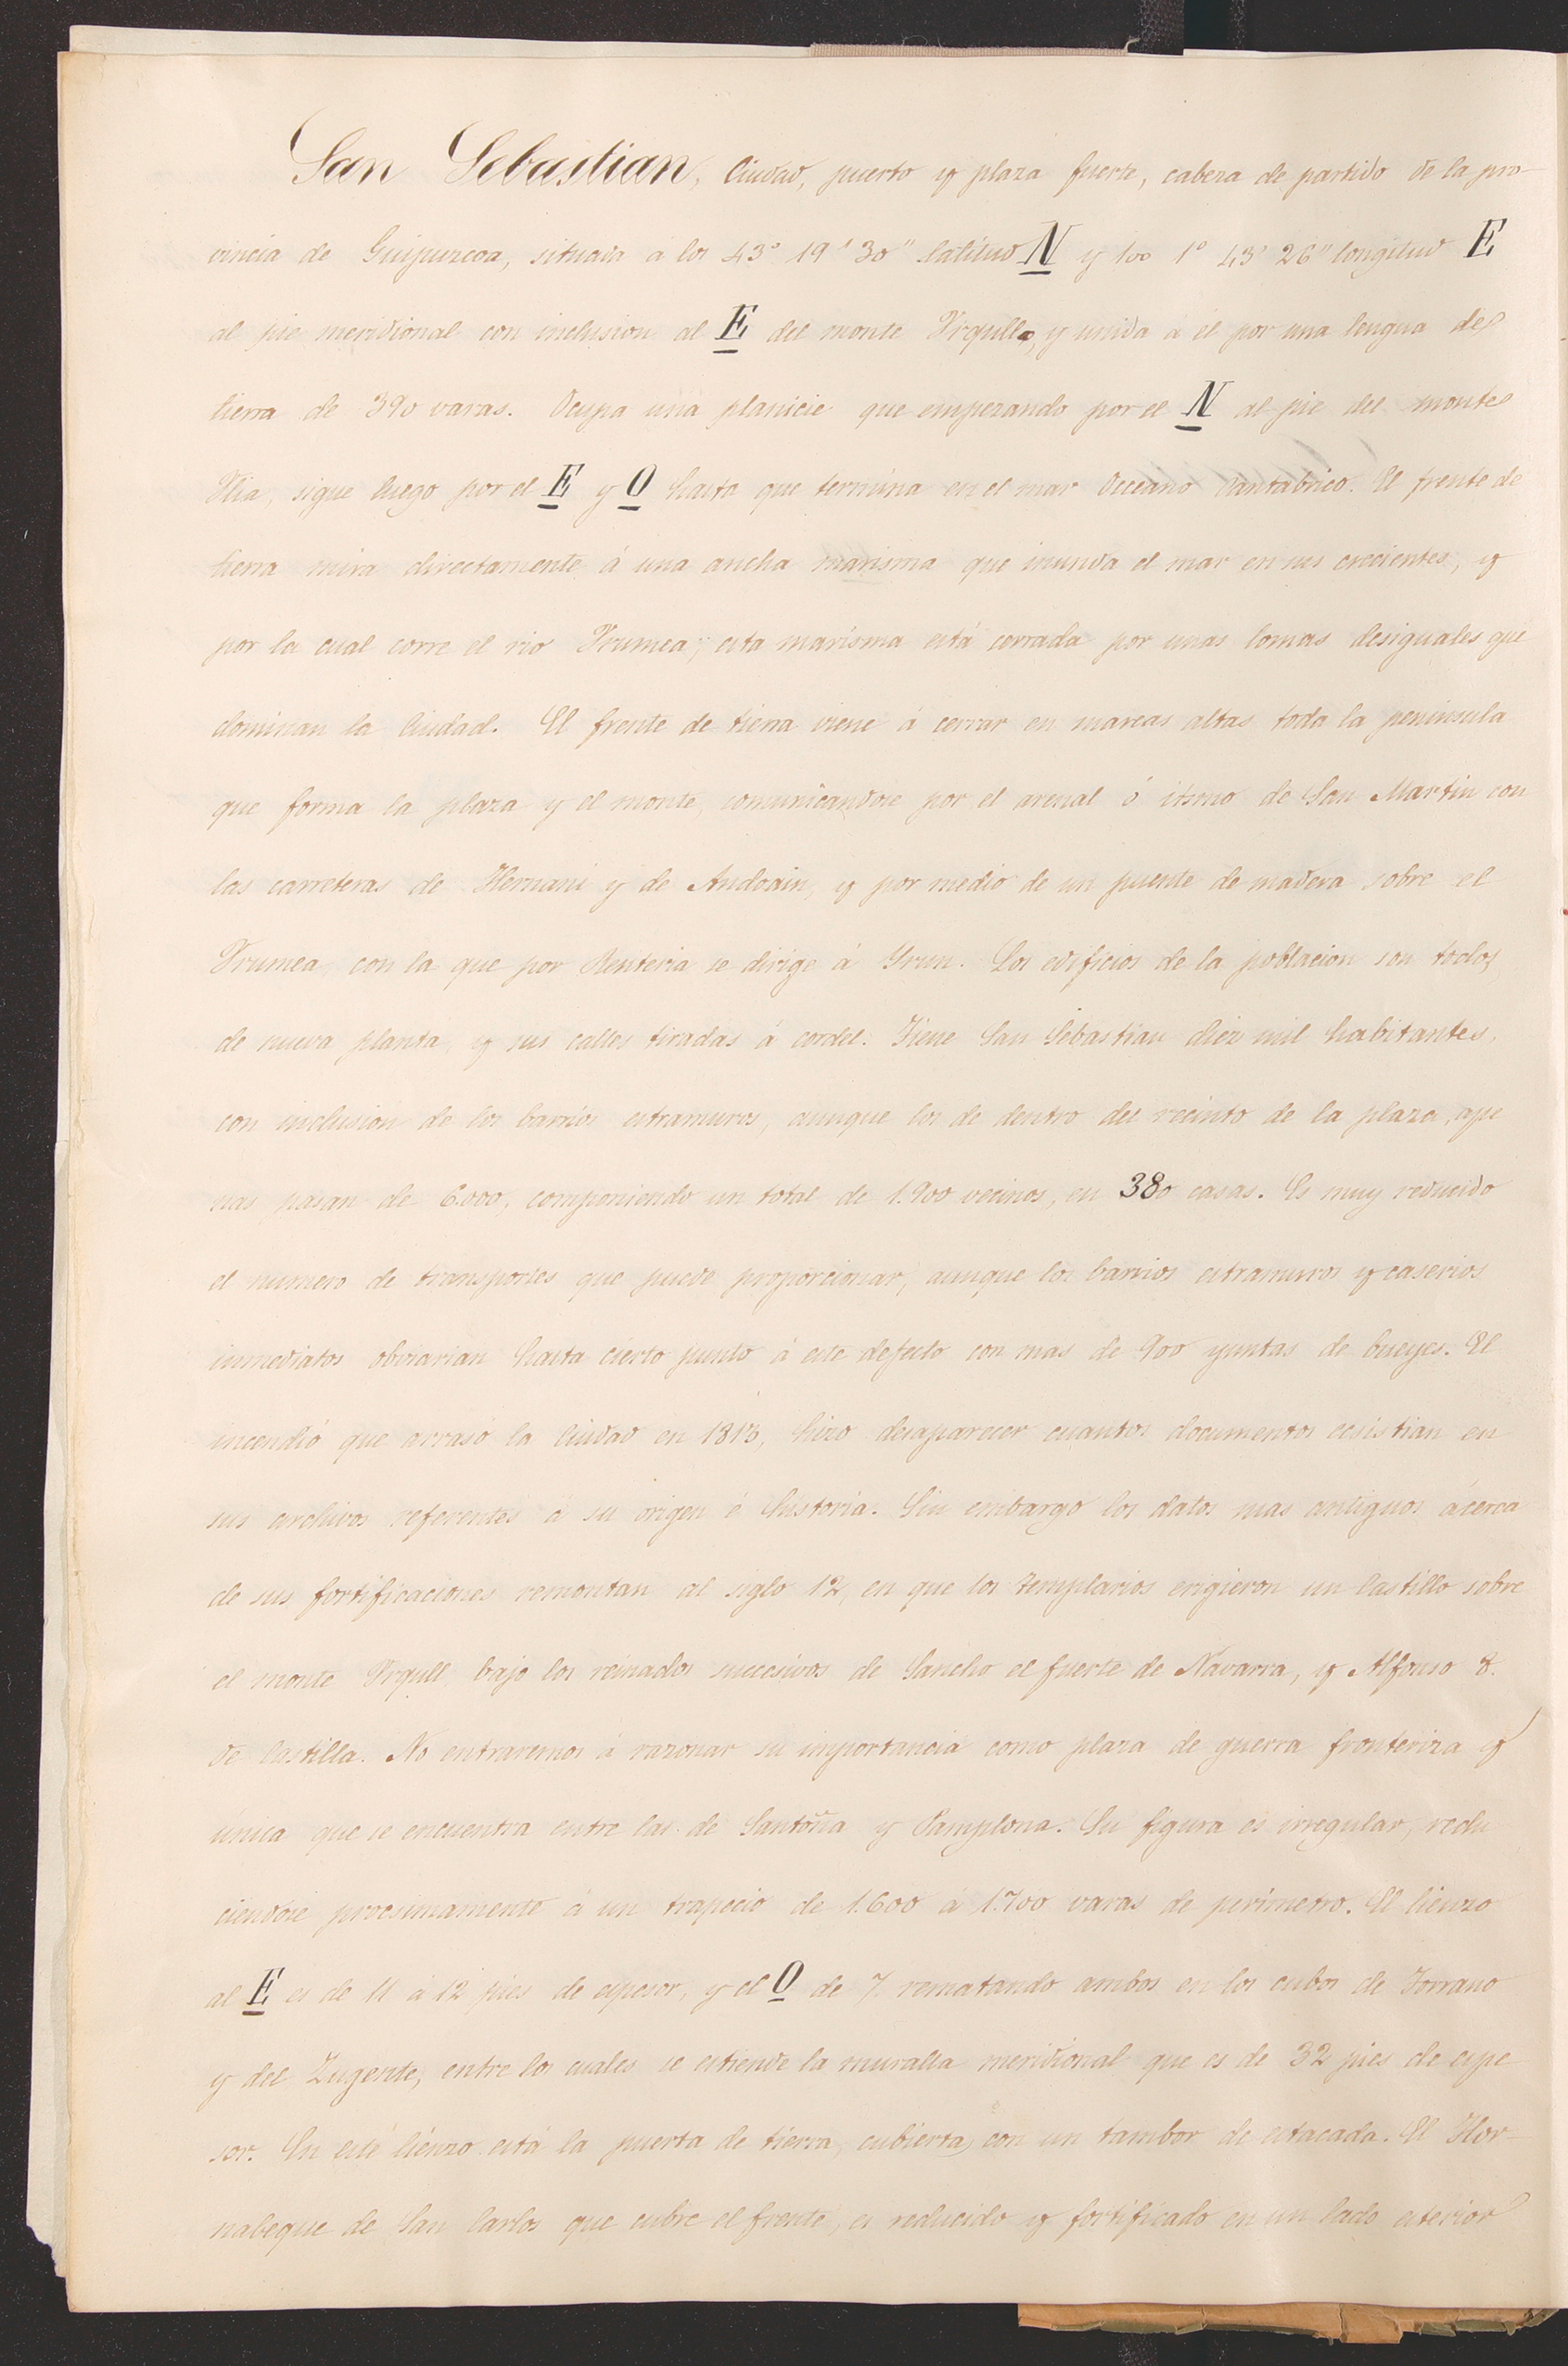 San Sebastian, Ciudad, puerto y plaza fuerte, cabeza de partido de la pro-
vincia de Guipuzcoa, situada á los 43° 19' 30" latitud N y los 1° 43' 26" longitud E
al pie meridional con inclusion al E del monte Urgull, y unida á él por una lengua de
tierra de 390 varas. Ocupa una planicie que empezando por el N al pie del monte
Ulia, sigue luego por el E y O hasta que termina en el mar Occeano Cantabrico. El frente de
tierra mira directamente á una ancha marisma que inunda el mar en sus crecientes, y
por la cual corre el rio Urumea; esta marisma está cerrada por unas lomas desiguales que
dominan la Ciudad. El frente de tierra viene á cerrar en mareas altas toda la peninsula
que forma la plaza y el monte, comunicandose por el arenal ó itsmo de San Martin con
las carreteras de Hernani y de Andoain, y por medio de un puente de madera sobre el
Urumea con la que por Renteria se dirige á Yrun. Los edificios de la poblacion son todos
de nueva planta, y sus calles tiradas á cordel. Tiene San Sebastian diez mil habitantes,
con inclusion de los barrios estramuros, aunque los de dentro del recinto de la plaza, ape
nas pasan de 6.000, componiendo un total de 1.900 vecinos, en 380 casas. Es muy reducido
el numero de transportes que puede proporcionar, aunque los barrios estramuros y caserios
inmediatos obviarian hasta cierto punto á este defecto con mas de 900 yuntas de bueyes. El
incendió que arrasó la Ciudad en 1813, hizo desaparecer cuantos documentos ecsistian en
sus archivos referentes á su origen é historia. Sin embargo los datos mas antiguos ácerca
de sus fortificaciones remontan al siglo 12, en que los templarios erigieron un Castillo sobre
el monte Urgull bajo los reinados sucesivos de Sancho el fuerte de Navarra, y Alfonso 8.
de Castilla. No entraremos á razonar su importancia como plaza de guerra fronteriza y
única que se encuentra entre las de Santoña y Pamplona. Su figura es irregular, redu
ciendose procsimamente á un trapecio de 1.600 á 1.700 varas de perimetro. El lienzo
al E es de 11 á 12 pies de espesor, y el O de 7 rematando ambos en los cubos de Torrano
y del Yngente, entre los cuales se estiende la muralla meridional que es de 32 pies de espe
sor. En este lienzo está la puerta de tierra, cubierta con un tambor de estacada. El Hor-
nabeque de San Carlos que cubre el frente, es reducido y fortificado en un lado esterior